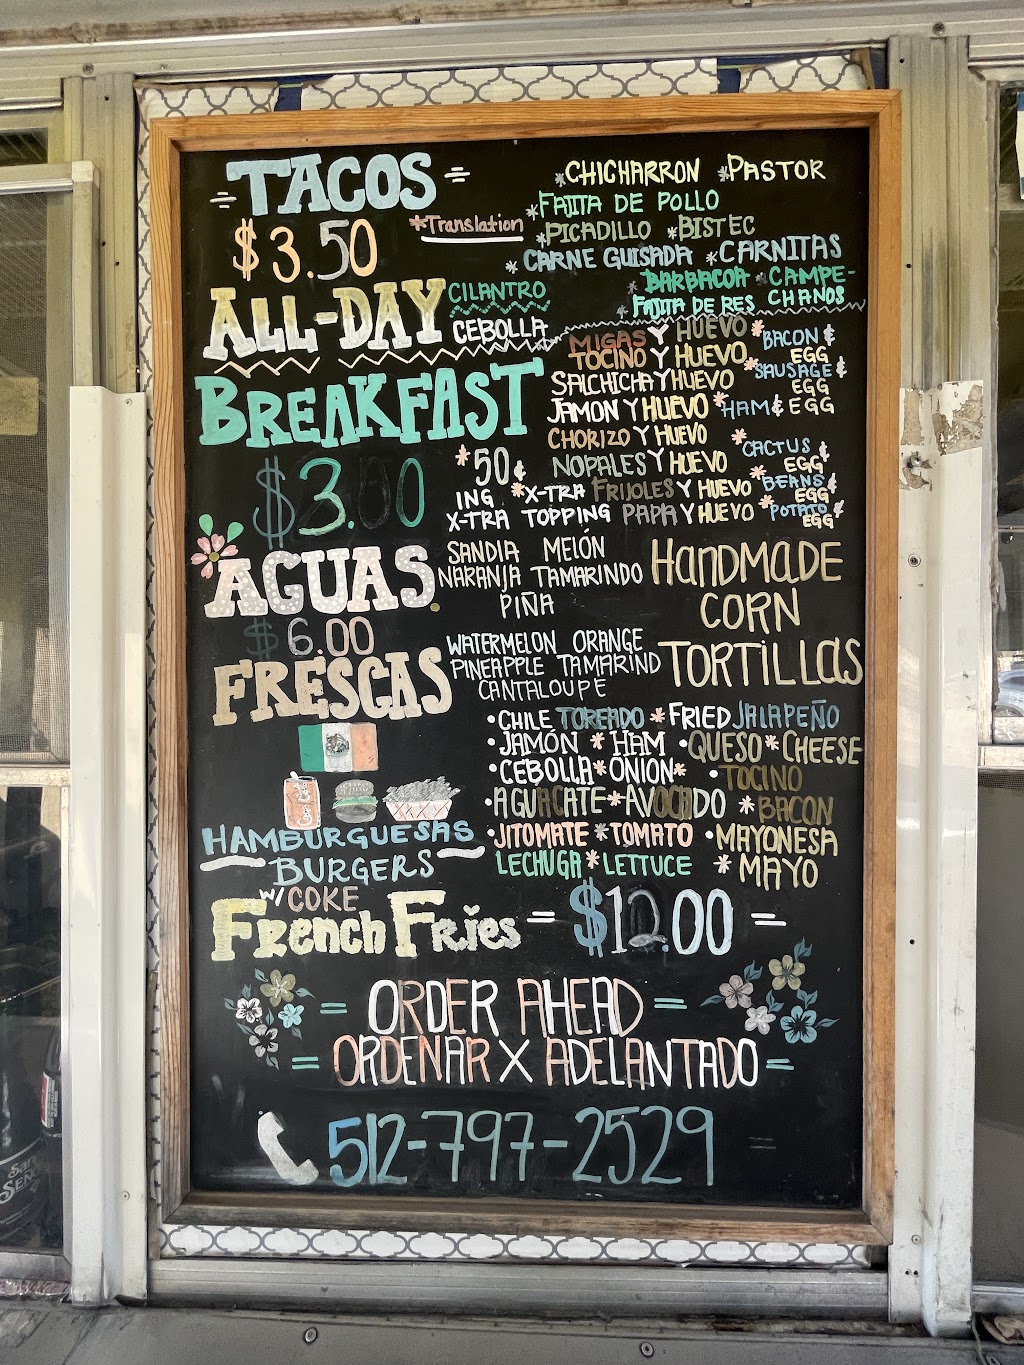 = TACOS =
$3.50
*Translation
*CHICHARRON *PASTOR
*FAJITA DE POLLO
*PICADILLO *BISTEC
*CARNE GUISADA *CARNITAS
*BARBACOA *CAMPE-
*FAJITA DE RES CHANOS
ALL-DAY
CILANTRO
CEBOLLA
BREAKFAST
$3.00
*50¢
ING *X-TRA
X-TRA TOPPING
MIGAS Y HUEVO
TOCINO Y HUEVO
SALCHICHA Y HUEVO
JAMON Y HUEVO
CHORIZO Y HUEVO
NOPALES Y HUEVO
FRIJOLES Y HUEVO
PAPA Y HUEVO
*BACON &
EGG
*SAUSAGE &
EGG
*HAM & EGG
*CACTUS &
EGG
*BEANS &
EGG
*POTATO &
EGG
AGUAS
$6.00
FRESCAS
SANDIA MELÓN
NARANJA TAMARINDO
PIÑA
WATERMELON ORANGE
PINEAPPLE TAMARIND
CANTALOUPE
HANDMADE
CORN
TORTILLAS
HAMBURGUESAS
BURGERS
W/ COKE
French Fries = $12.00 =
•CHILE TOREADO *FRIED JALAPEÑO
•JAMÓN *HAM •QUESO*CHEESE
•CEBOLLA*ONION* •TOCINO
•AGUACATE*AVOCADO *BACON
•JITOMATE*TOMATO •MAYONESA
LECHUGA*LETTUCE *MAYO
= ORDER AHEAD =
= ORDENAR X ADELANTADO =
512-797-2529